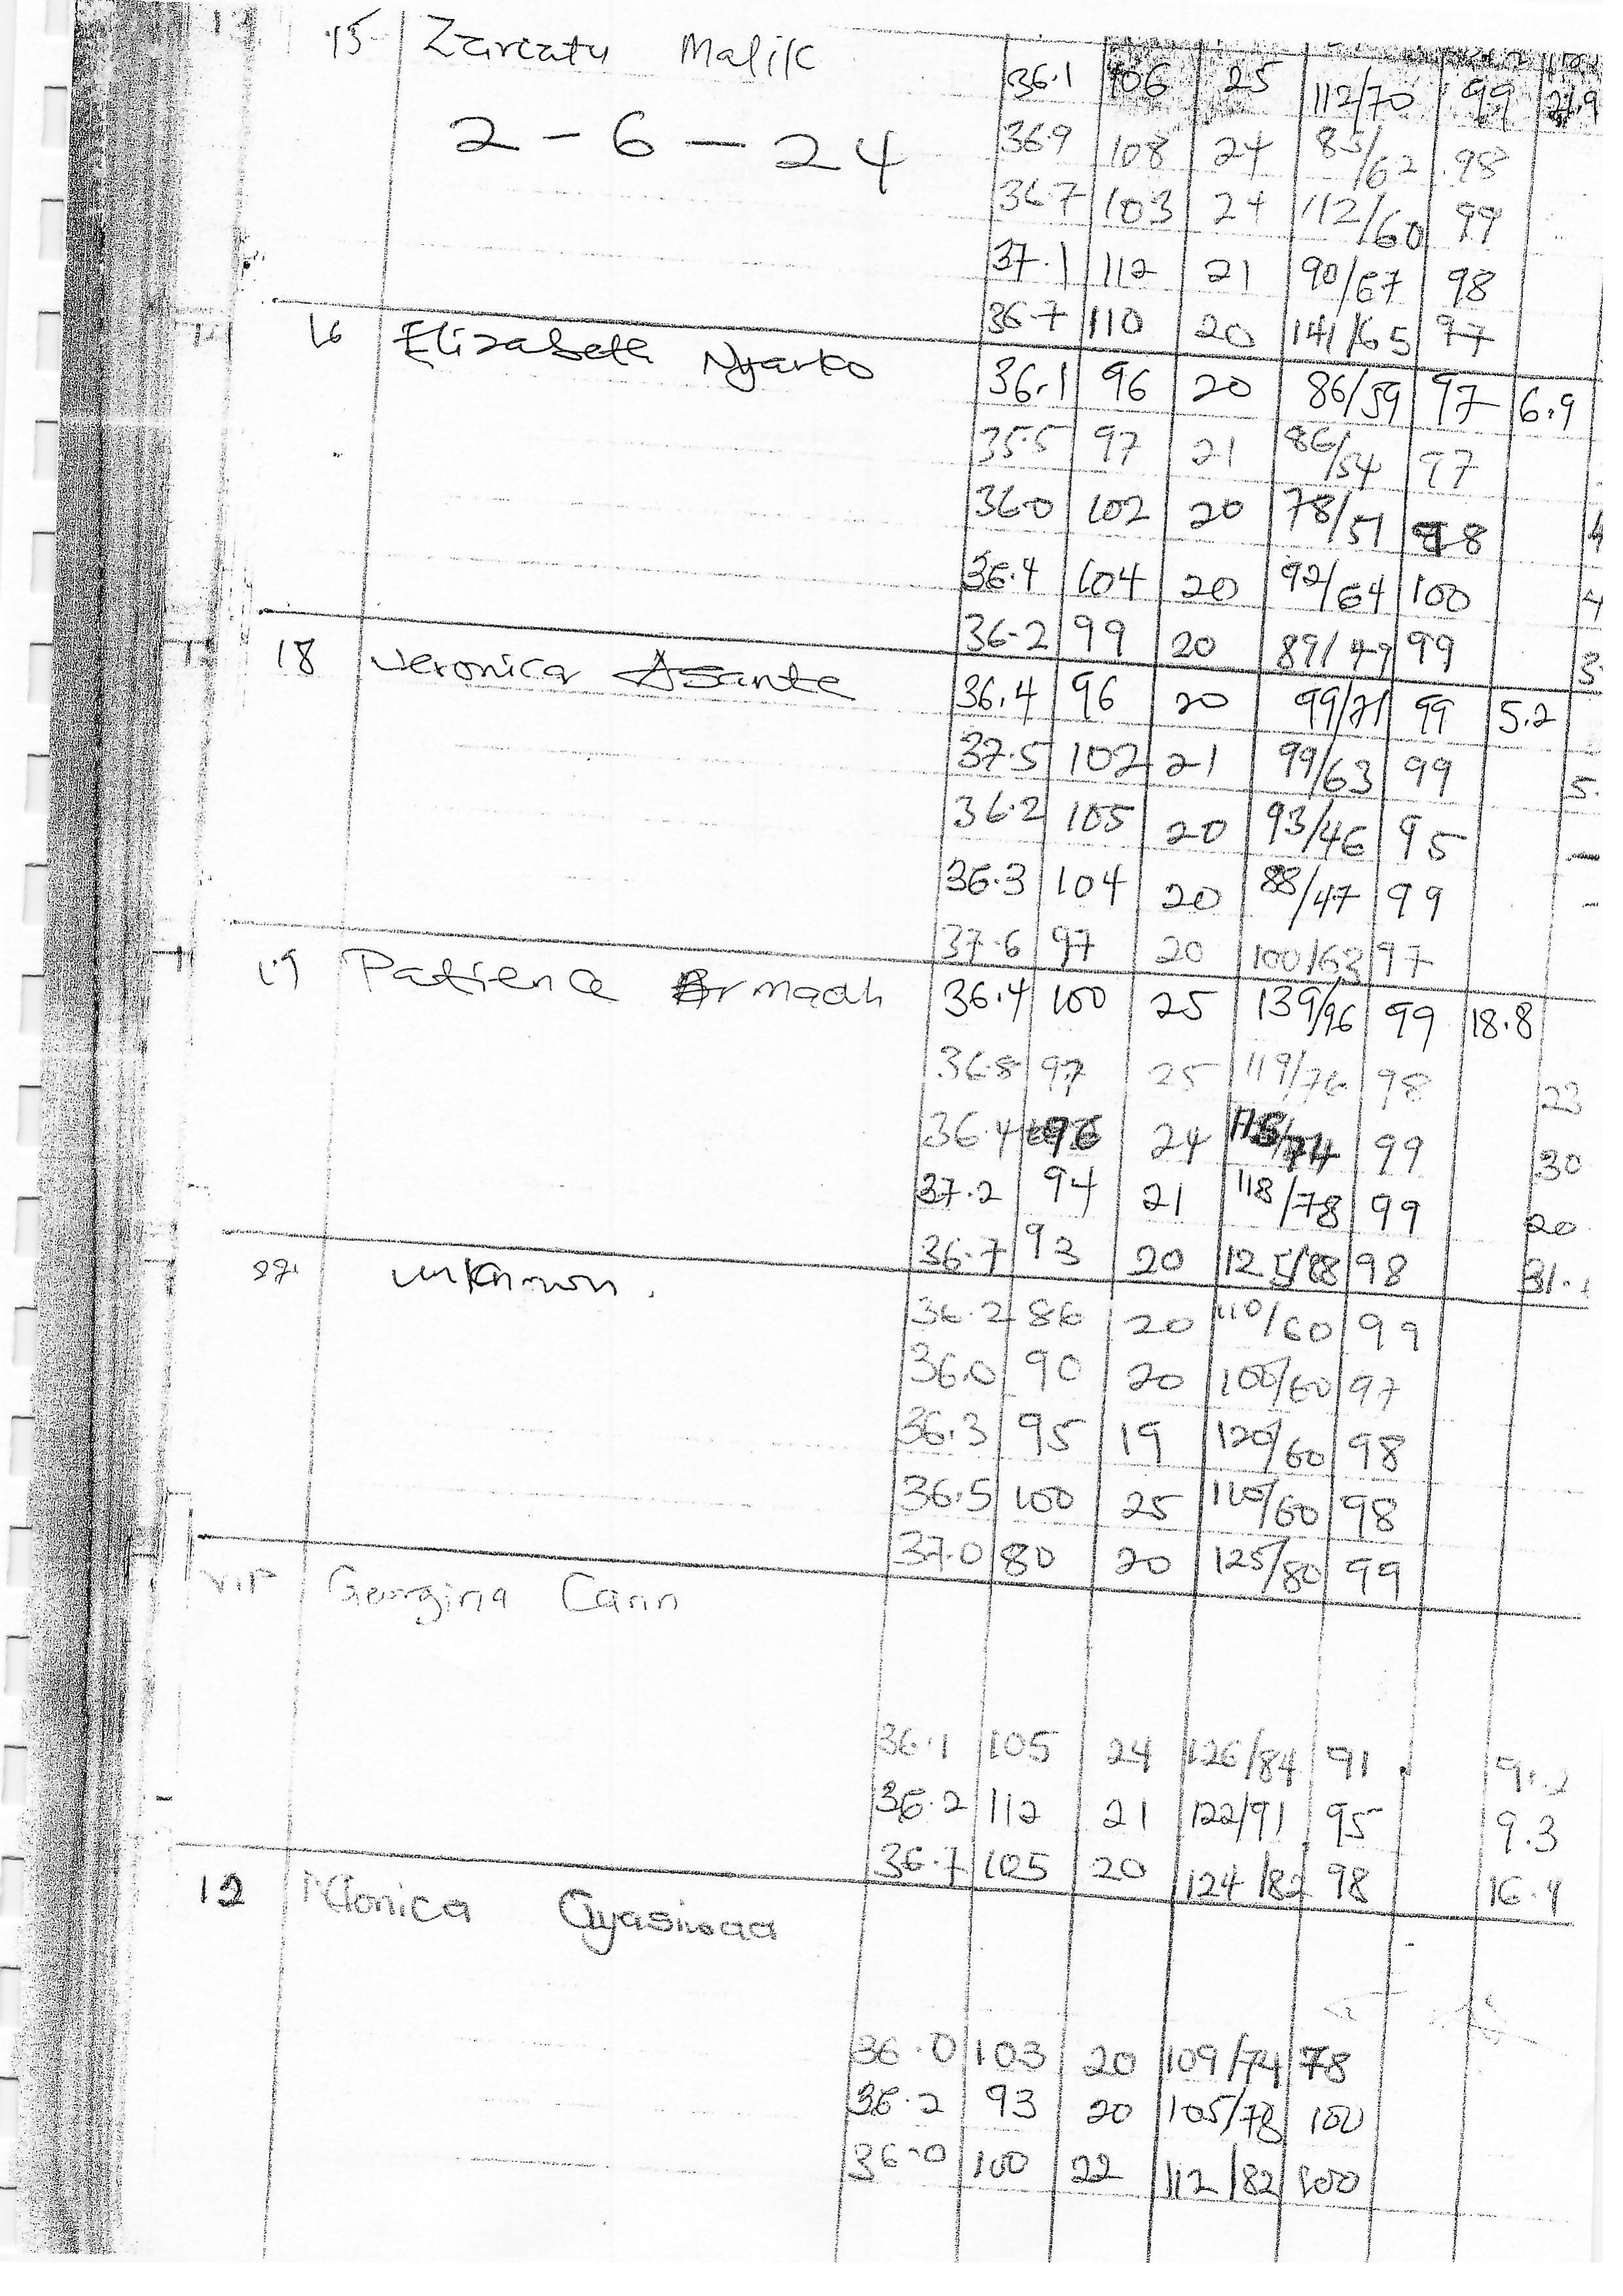 15 Zariatu Malik 36.1 106 25 112/70 99
2 - 6 - 24
36.9 108 24 85/62 98
36.7 103 24 112/60 99
37.1 112 21 90/67 98
36.7 110 20 141/65 97
16 Elizabeth Nyarko 36.1 96 20 86/59 97 6.9
35.5 97 21 86/54 97
36.0 102 20 78/51 98
36.4 104 20 92/64 100
36.2 99 20 89/49 99
18 Veronica Asante 36.4 96 20 99/71 99 5.2
37.5 102 21 99/63 99
36.2 105 20 93/46 95
36.3 104 20 88/47 99
37.6 97 20 100/63 97
19 Patience Armaah 36.4 100 25 139/96 99 18.8
36.8 97 25 119/76 98 23
36.4 96 24 74 99 30
37.2 94 21 118/78 99 20
36.7 93 20 125/88 98
unknown.
36.2 86 20 110/60 99
36.0 90 20 100/60 97
36.3 95 19 120/60 98
36.5 100 25 110/60 98
37.0 80 20 125/80 99
VIP Georgina Cann
36.1 105 24 126/84 91
36.2 112 21 122/91 95 9.3
36.7 105 20 124/82 98 16.4
12 Monica Gyasiwaa
36.0 103 20 109/74 78
36.2 93 20 105/78 100
36.0 100 22 112/82 100